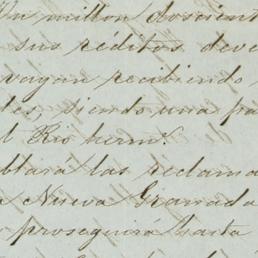 Un millon doscient
sus réditos deve
vayan recibiendo
les, siendo una pa
l Rio herm.
btará las reclama
a Nueva Granada
proseguirá hasta